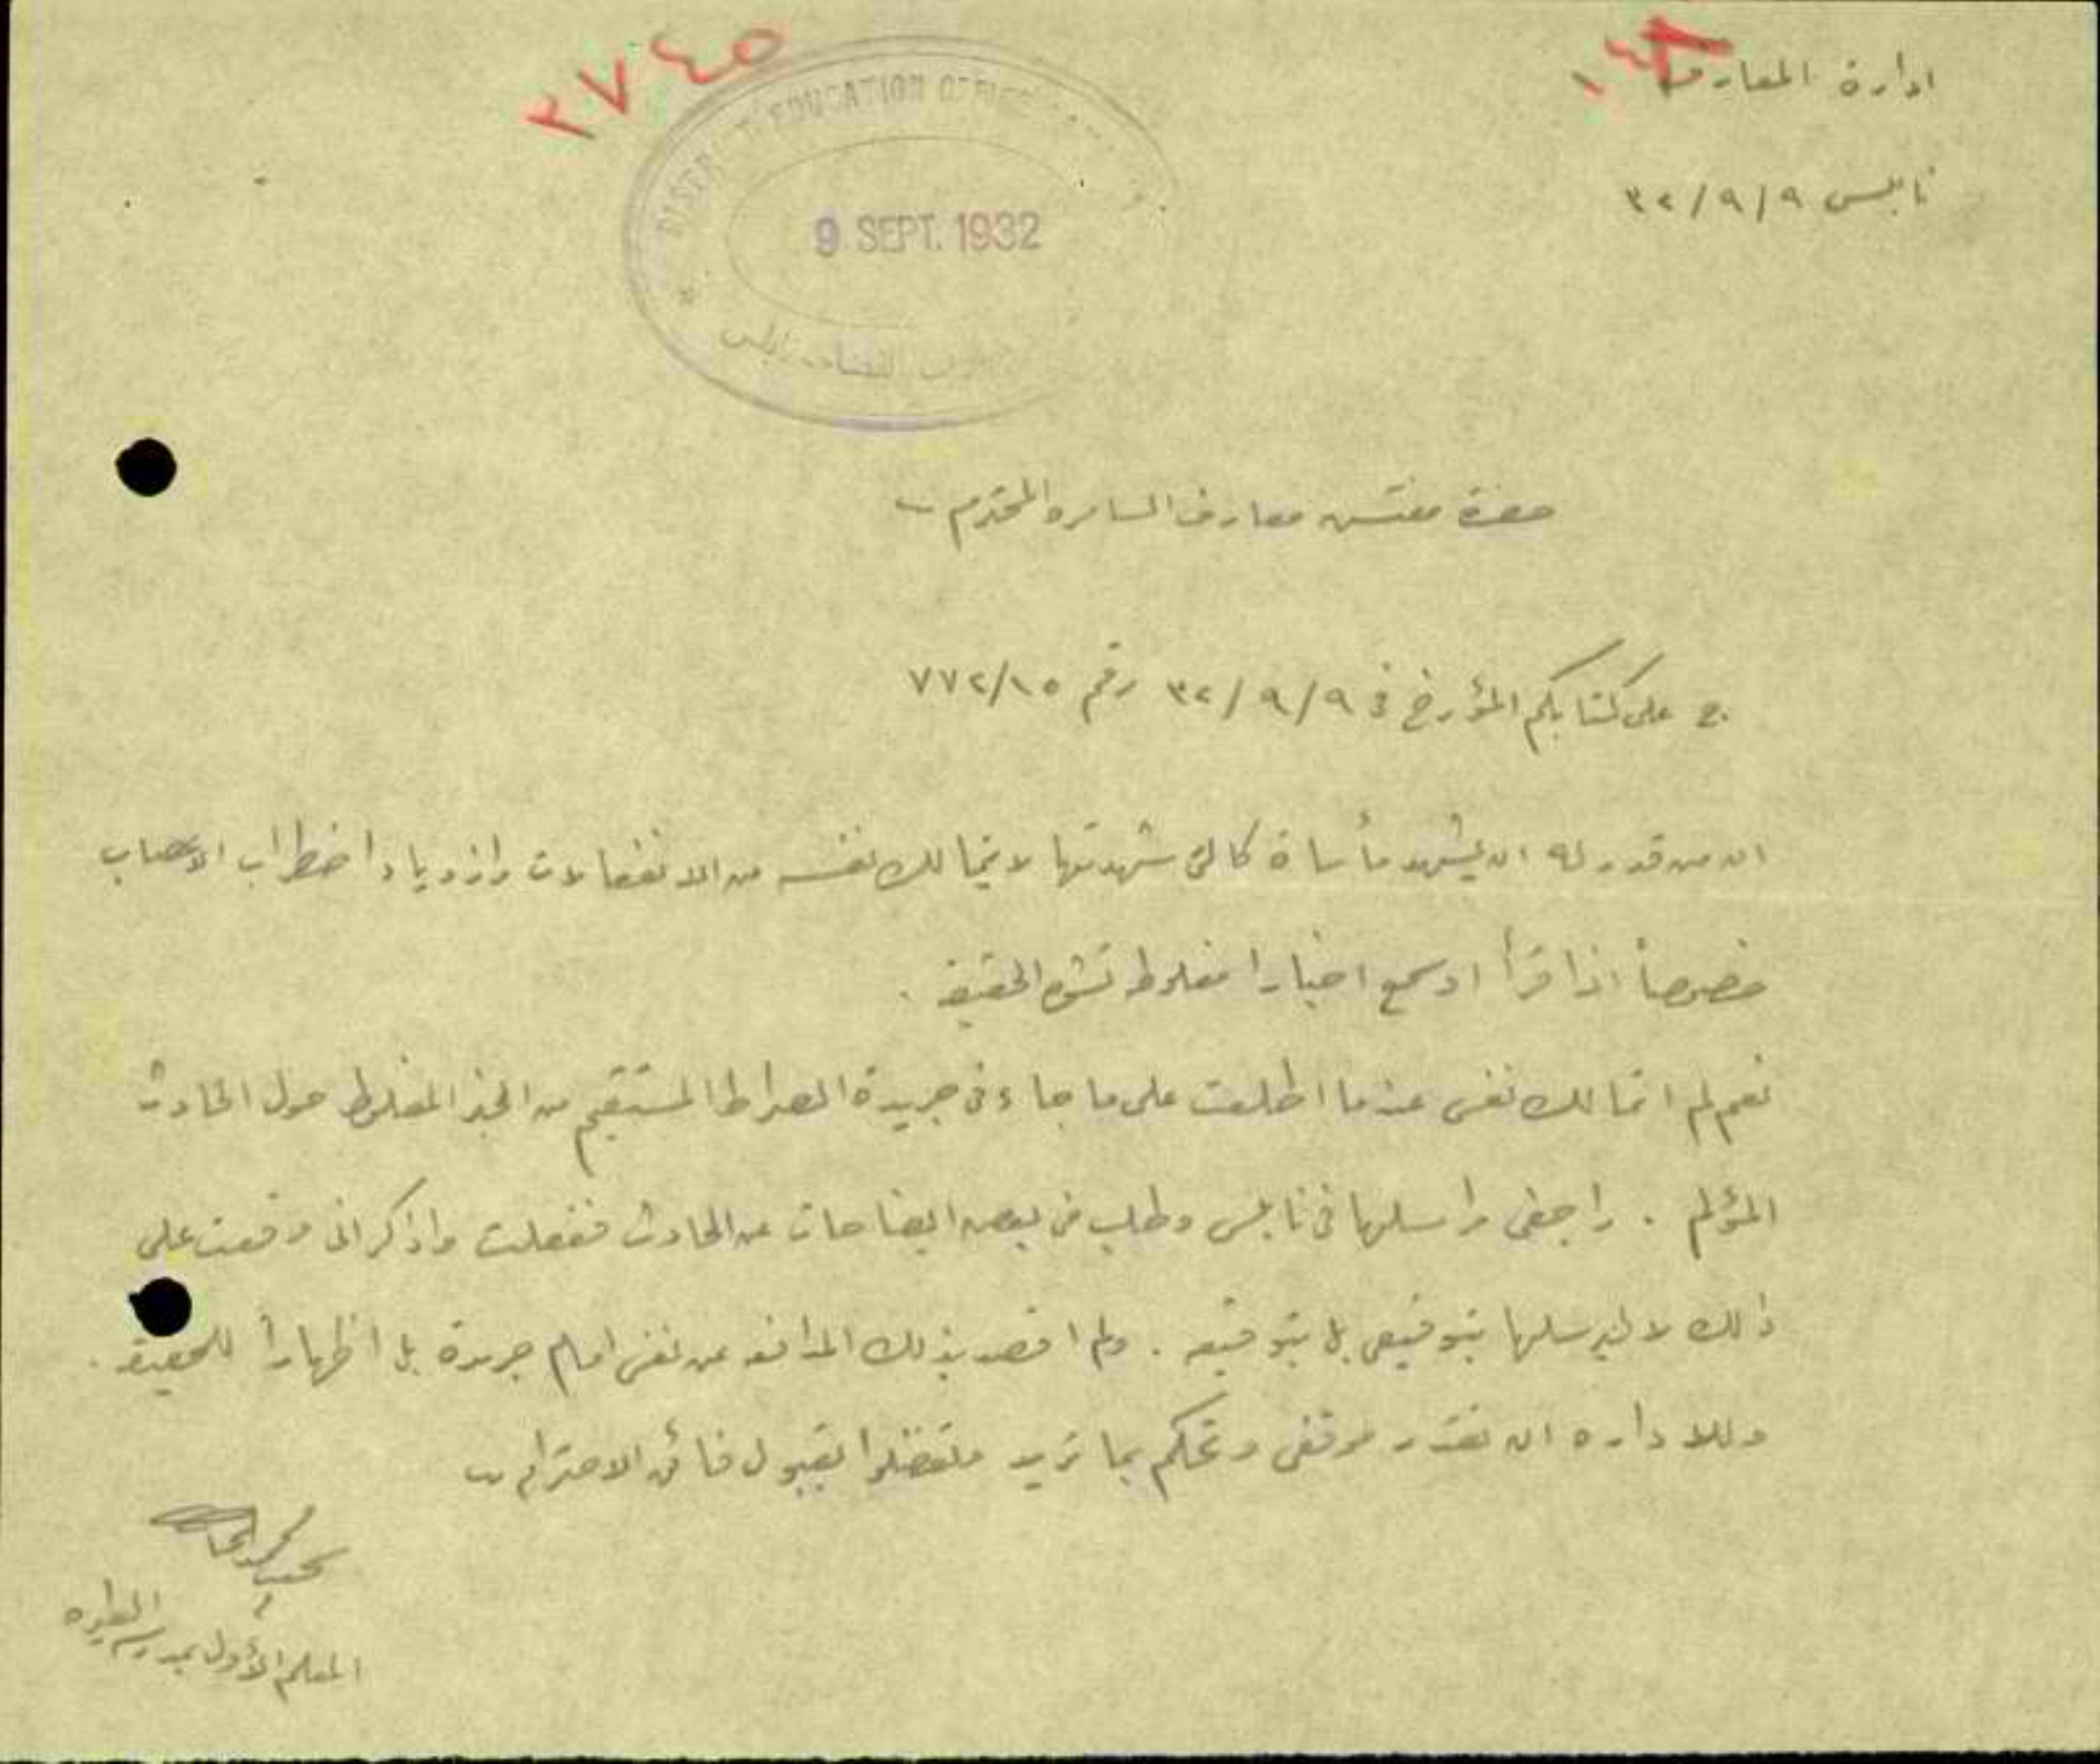 ٢٧٤٥
ادارة المعارف
نابلس ٩/٩/٣٢
DISTRICT EDUCATION OFFICE
9 SEPT. 1932
حضرة مفتش معارف السامره المحترم
ج على كتابكم المؤرخ في ٩/٩/٣٢ رقم ٧٧٢/١٥
ان من قدر له ان يشهد مأساة كالتي شهدتها لا يتمالك نفسه من الانفعالات وازدياد اضطراب الاعصاب
خصوصاً اذا قرأ او سمع اخبارا مغلوطه تشوه الحقيقه .
نعم لم اتمالك نفسي عندما اطلعت على ما جاء في جريدة الصراط المستقيم من الخبر المغلوط حول الحادث
المؤلم . راجعني مراسلها في نابلس وطلب مني بعض ايضاحات عن الحادث ففعلت واذكر اني وقعت على
ذلك لا ليرسلها بتوقيعي بل بتوقيعه . ولم اقصد بذلك المدافعه عن نفسي امام جريدة بل اظهاراً للحقيقه .
وللاداره ان تقدر موقفي وتحكم بما تريد وتفضلوا بقبول فائق الاحترام
المعلم الأول بمدرسة